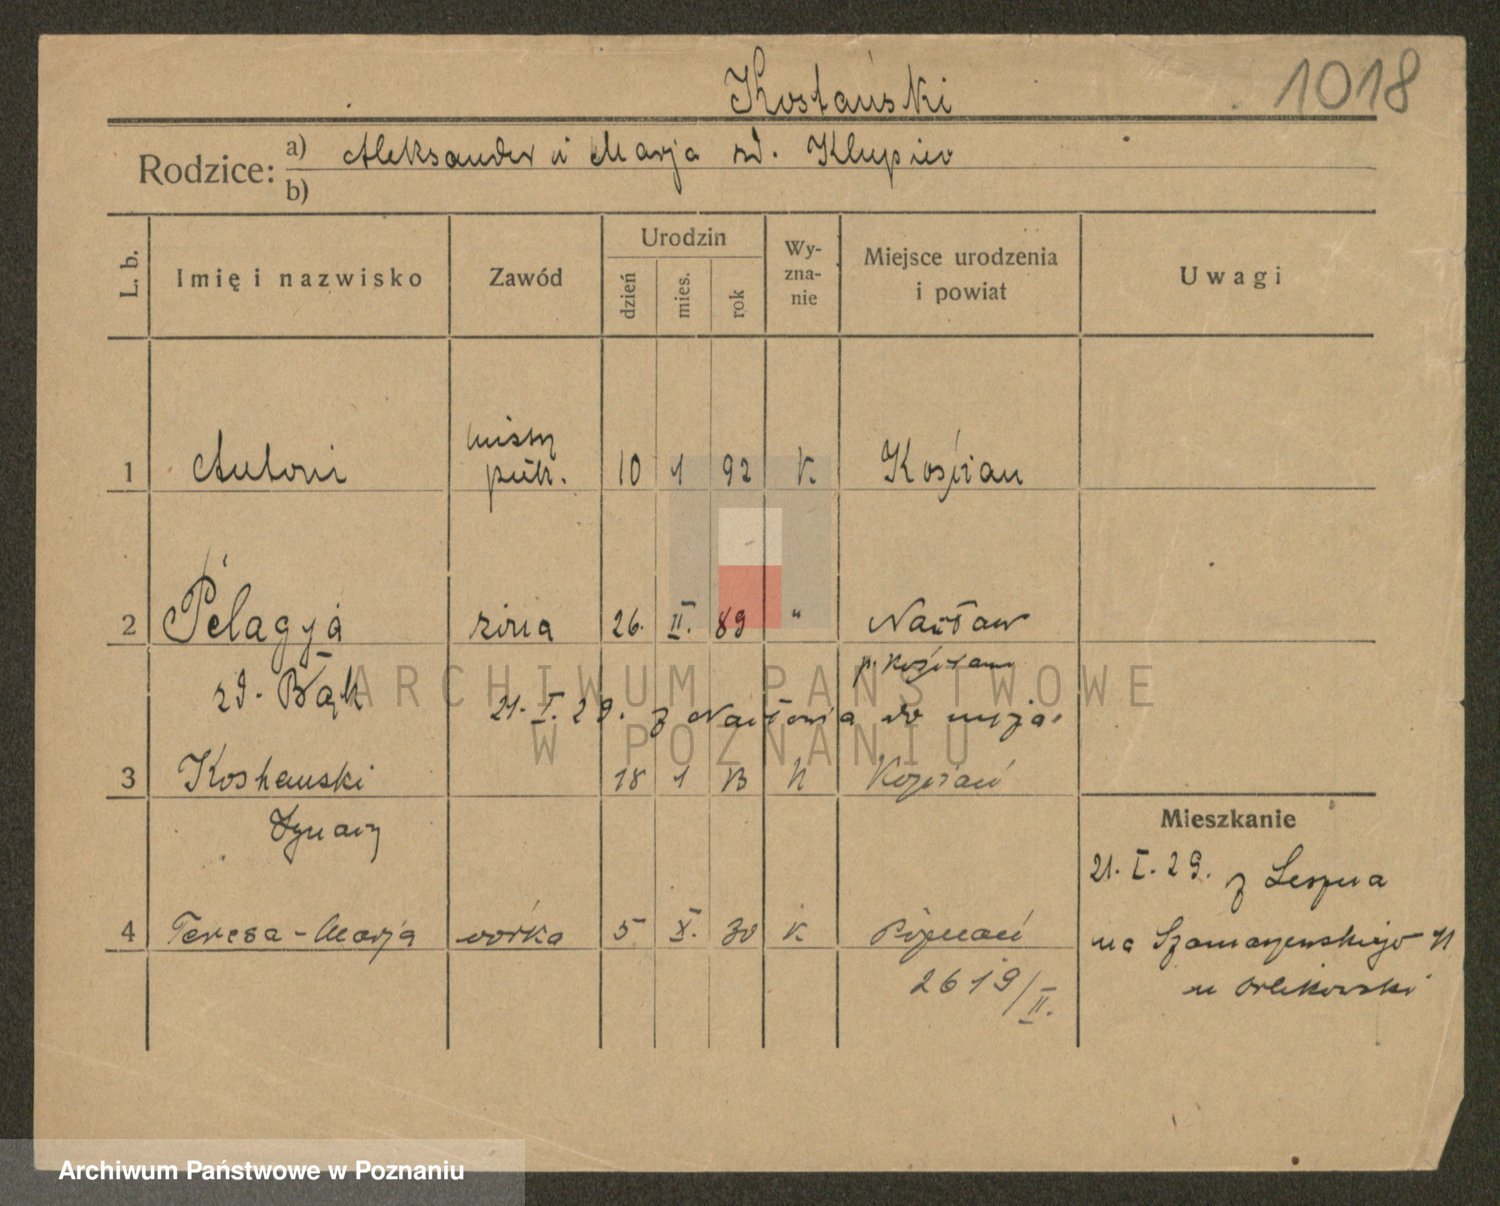 Kostański
1018
Rodzice:
a) Aleksander i Marja zd. Klupiec
b)
L. b.
Imię i nazwisko
Zawód
Urodzin
dzień
mies.
rok
Wy-
zna-
nie
Miejsce urodzenia
i powiat
Uwagi
mistrz
1 Antoni piek. 10 1 92 K Kościan
2 Pelagja żona 26. II. 89 " Nacław
zd. Bąk
p. Kościan
21. I. 29. z Nacławia do męża.
3 18 1 K Kościan
Ignacy
Mieszkanie
21. I. 29. z Leszna
4 Teresa-Marja córka 5 X. 30 K Poznań
na Szamarzewskiego 11
u Orlikowski
2619/II.
ARCHIWUM PAŃSTWOWE
W POZNANIU
Archiwum Państwowe w Poznaniu